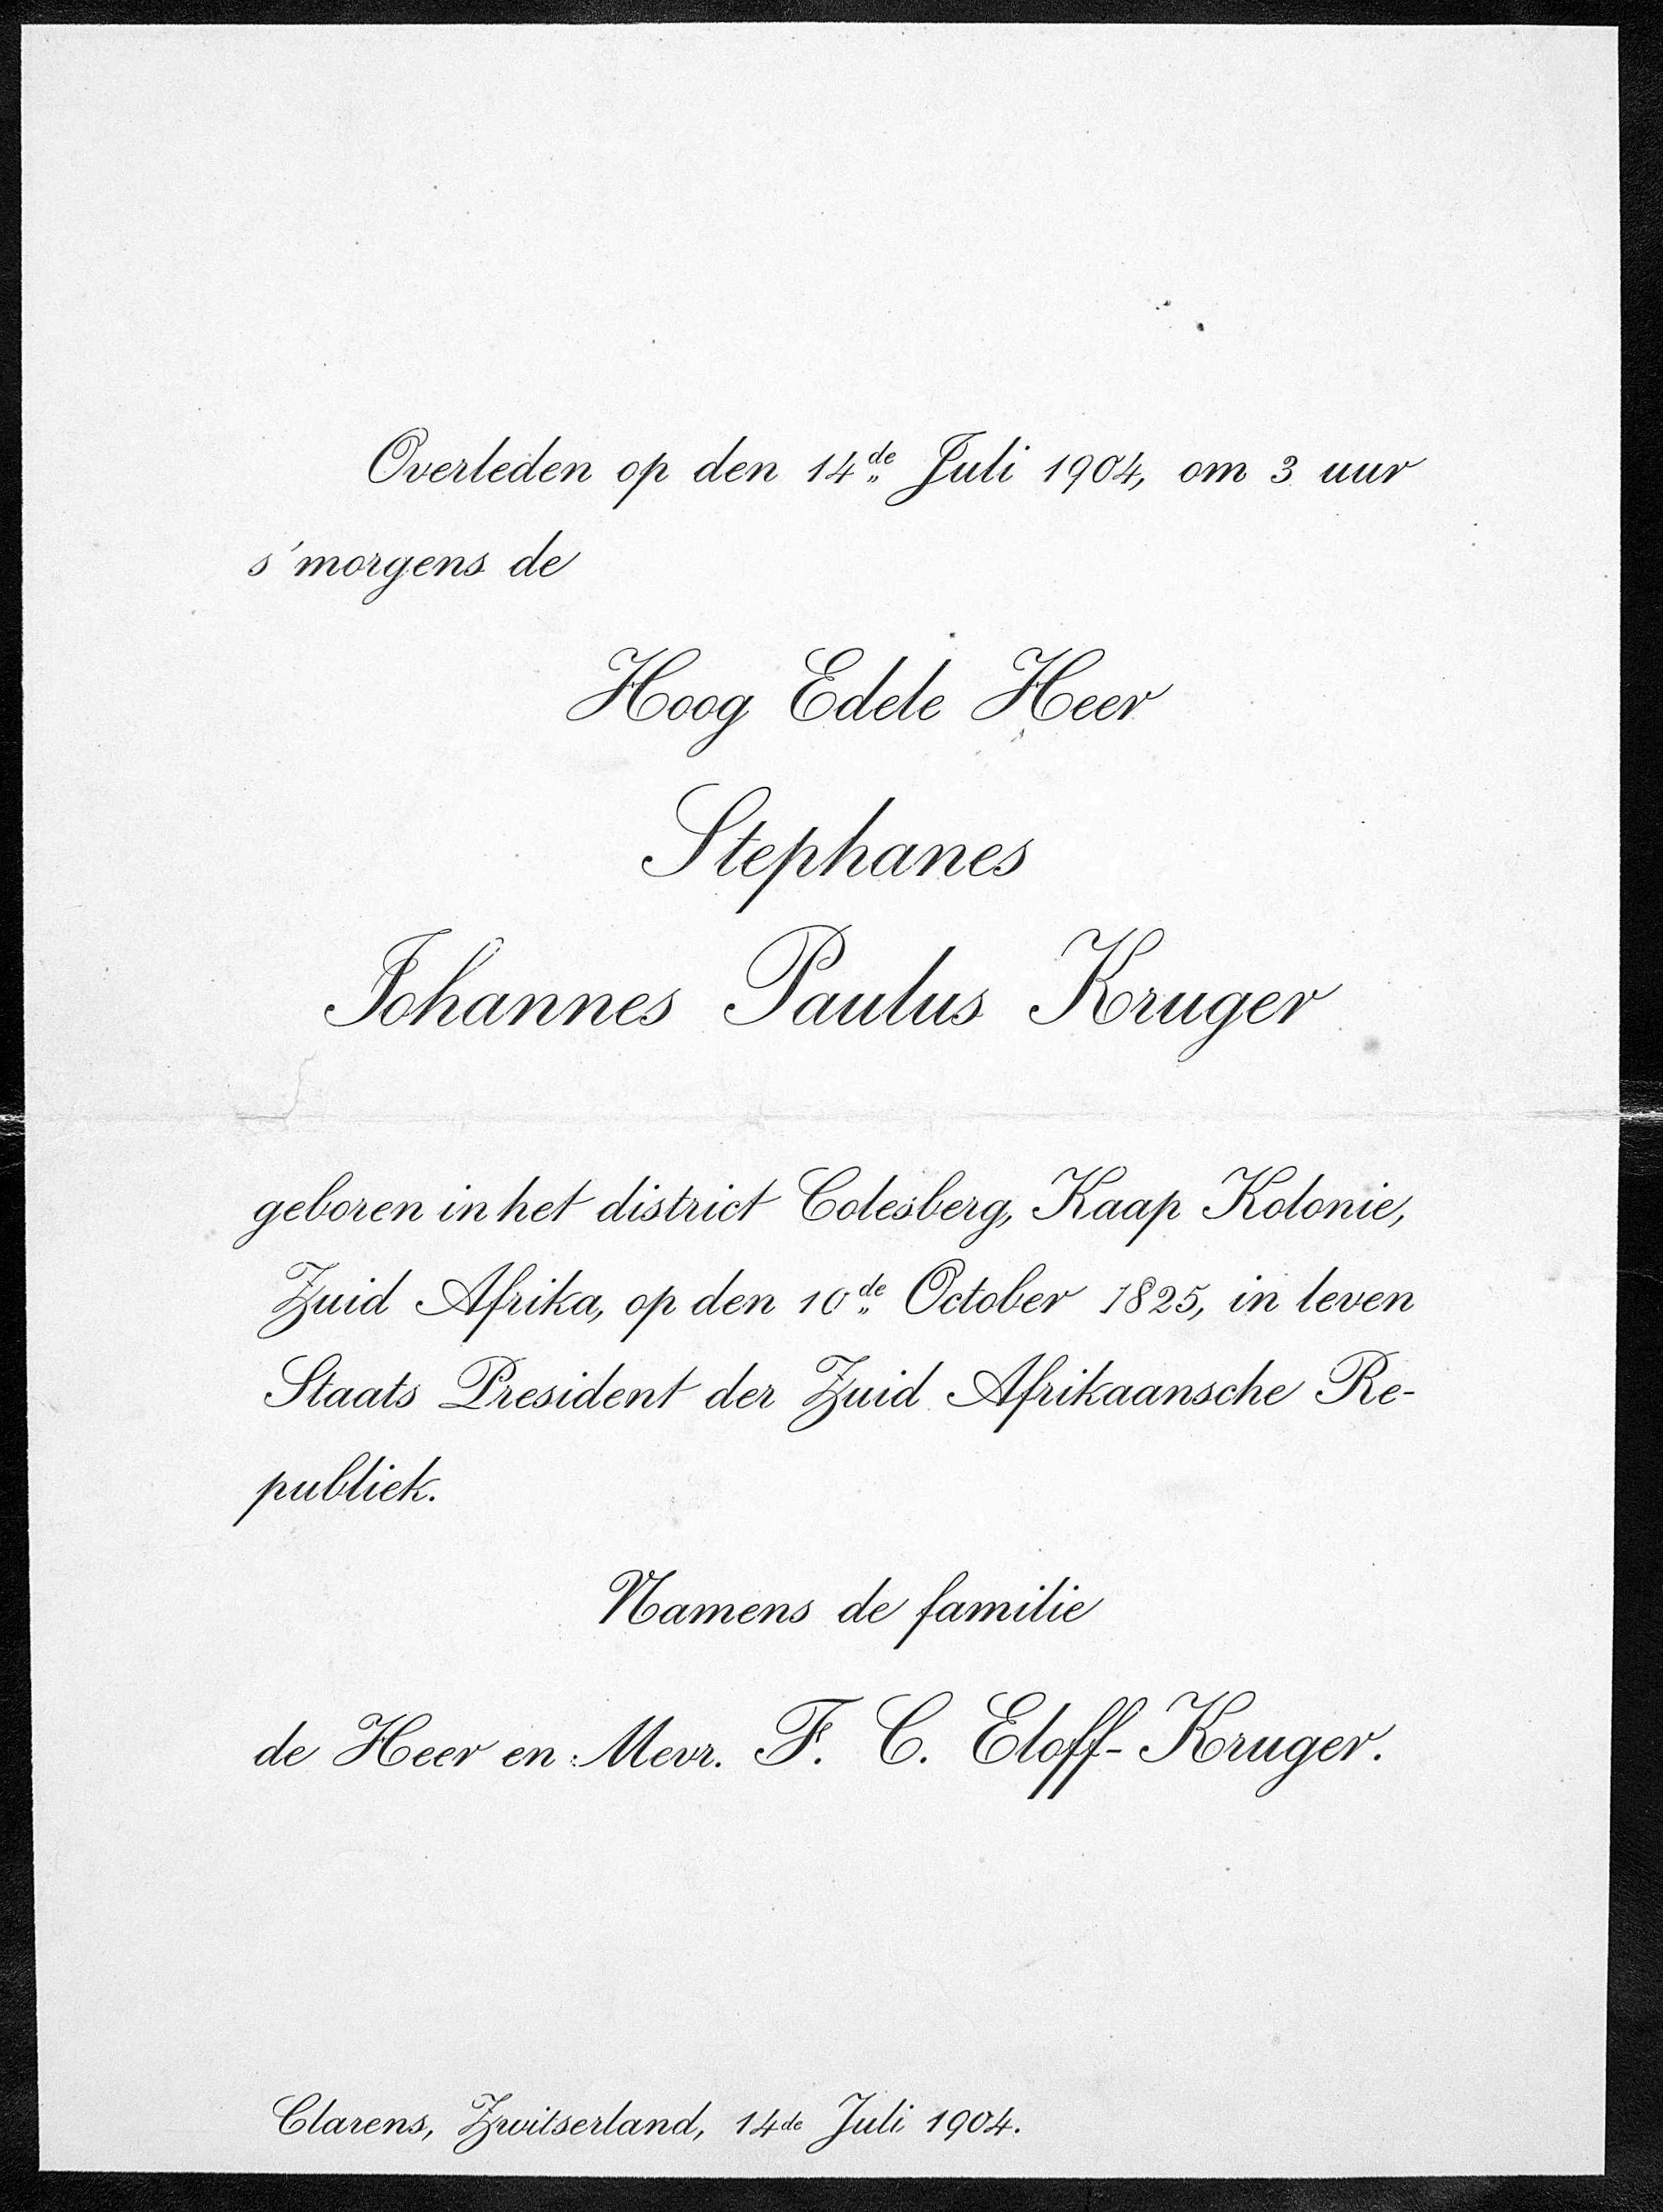 Overleden op den 14de Juli 1904, om 3 uur
s'morgens de
Hoog Edele Heer
Stephanes
Johannes Paulus Kruger
geboren in het district Colesberg, Kaap Kolonie,
Zuid Afrika, op den 10de October 1825, in leven
Staats President der Zuid Afrikaansche Re-
publiek.
Namens de familie
de Heer en Mevr. F. C. Eloff-Kruger.
Clarens, Zwitserland, 14de Juli 1904.